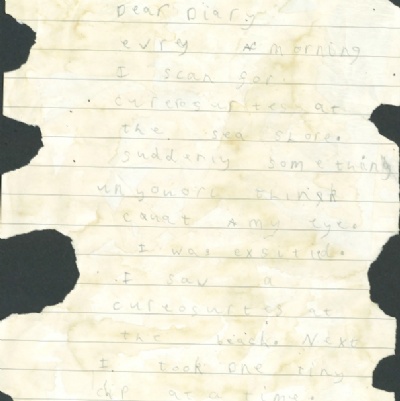 Dear Diary
evrey morning
I scan for
cureosurtes at
the sea shore.
suddenly something
unyouorl things
caust my eye.
I was exsitid.
I saw a
cureosurtes at
the beach. Next
I took one tiny
chip at a time.